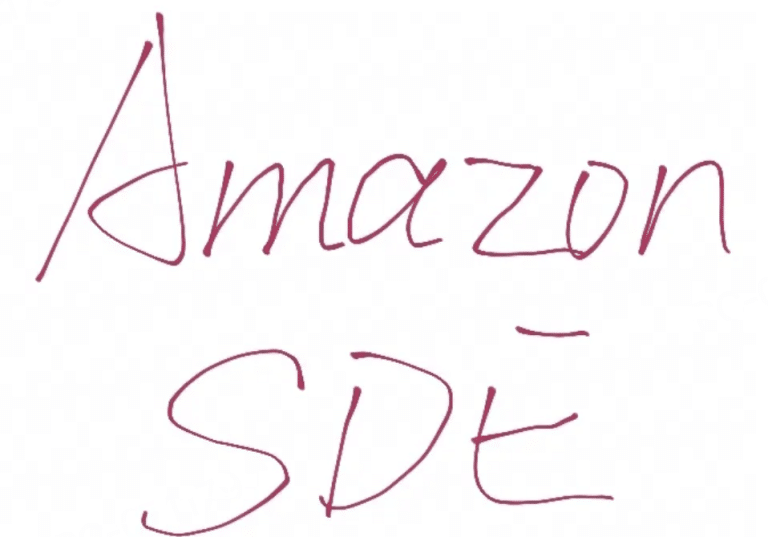 Amazon
SDE